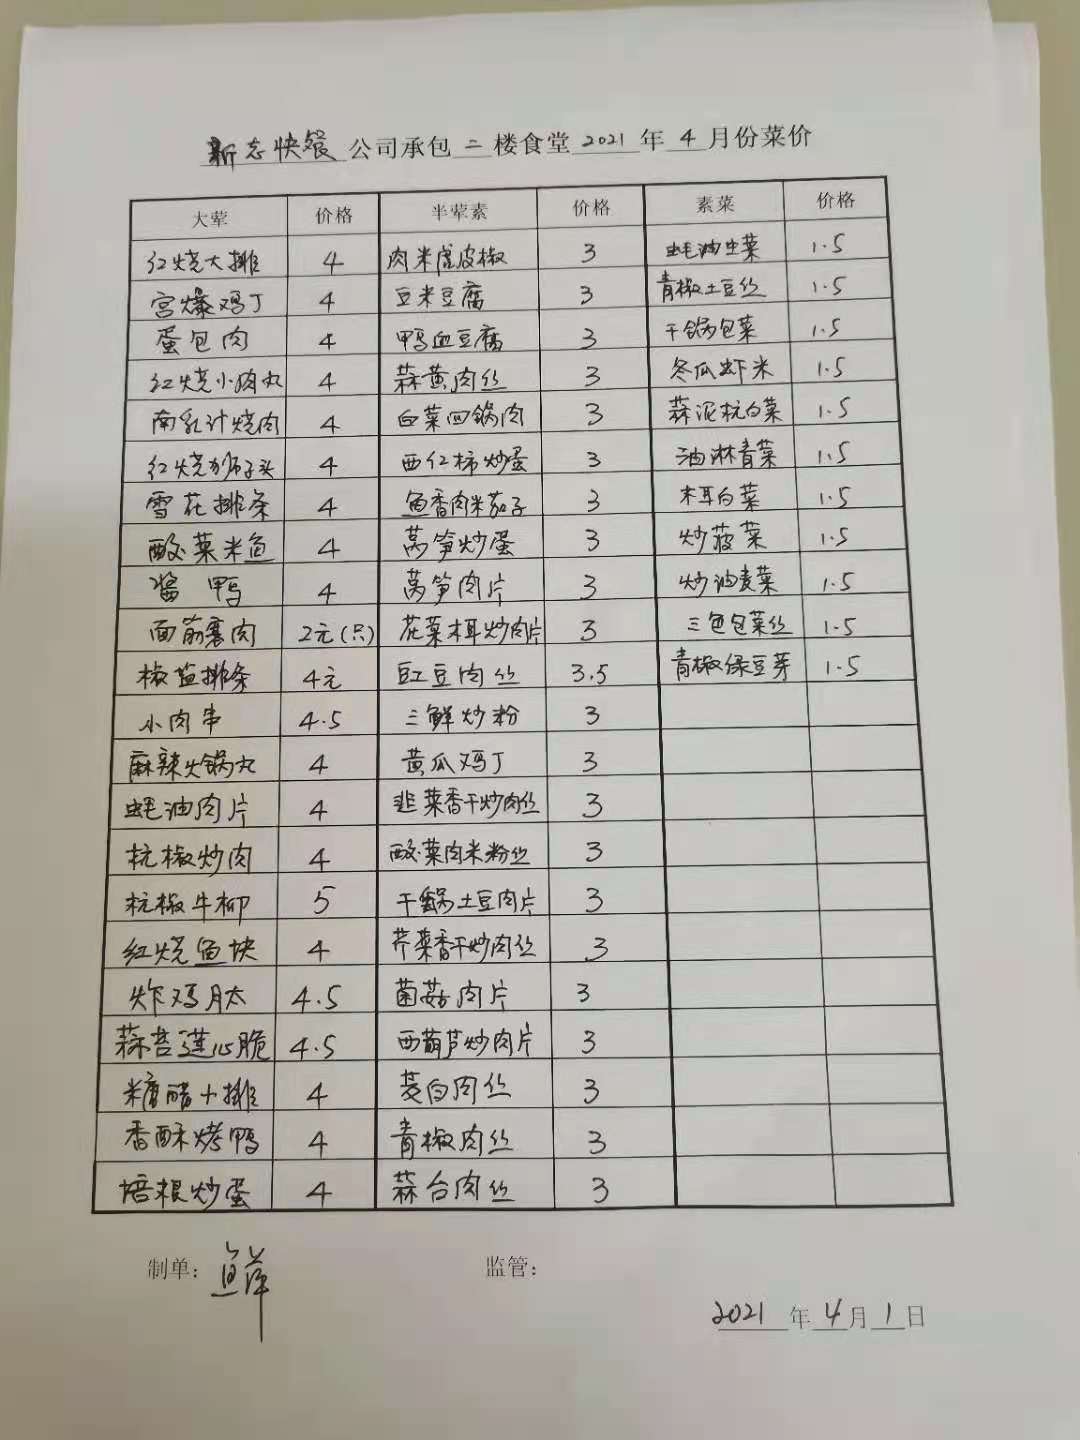 新志快餐公司承包二楼食堂2021年4月份菜价
大荤 价格 半荤素 价格 素菜 价格
红烧大排 4 肉米虎皮椒 3 蚝油生菜 1.5
宫爆鸡丁 4 豆米豆腐 3 青椒土豆丝 1.5
蛋包肉 4 鸭血豆腐 3 干锅包菜 1.5
红烧小肉丸 4 蒜黄肉丝 3 冬瓜虾米 1.5
南乳汁烧肉 4 白菜回锅肉 3 蒜泥杭白菜 1.5
红烧狮子头 4 西红柿炒蛋 3 油淋青菜 1.5
雪花排条 4 鱼香肉米茄子 3 木耳白菜 1.5
酸菜米鱼 4 莴笋炒蛋 3 炒菠菜 1.5
酱鸭 4 莴笋肉片 3 炒油麦菜 1.5
面筋裹肉 2元(只) 花菜木耳炒肉片 3 三色包菜丝 1.5
椒盐排条 4元 豇豆肉丝 3.5 青椒绿豆芽 1.5
小肉串 4.5 三鲜炒粉 3
麻辣火锅丸 4 黄瓜鸡丁 3
蚝油肉片 4 韭菜香干炒肉丝 3
杭椒炒肉 4 酸菜肉米粉丝 3
杭椒牛柳 5 干锅土豆肉片 3
红烧鱼块 4 芹菜香干炒肉丝 3
炸鸡月太 4.5 菌菇肉片 3
蒜苔莲心脆 4.5 西葫芦炒肉片 3
糖醋小排 4 茭白肉丝 3
香酥烤鸭 4 青椒肉丝 3
培根炒蛋 4 蒜台肉丝 3
制单: 监管:
2021年4月1日